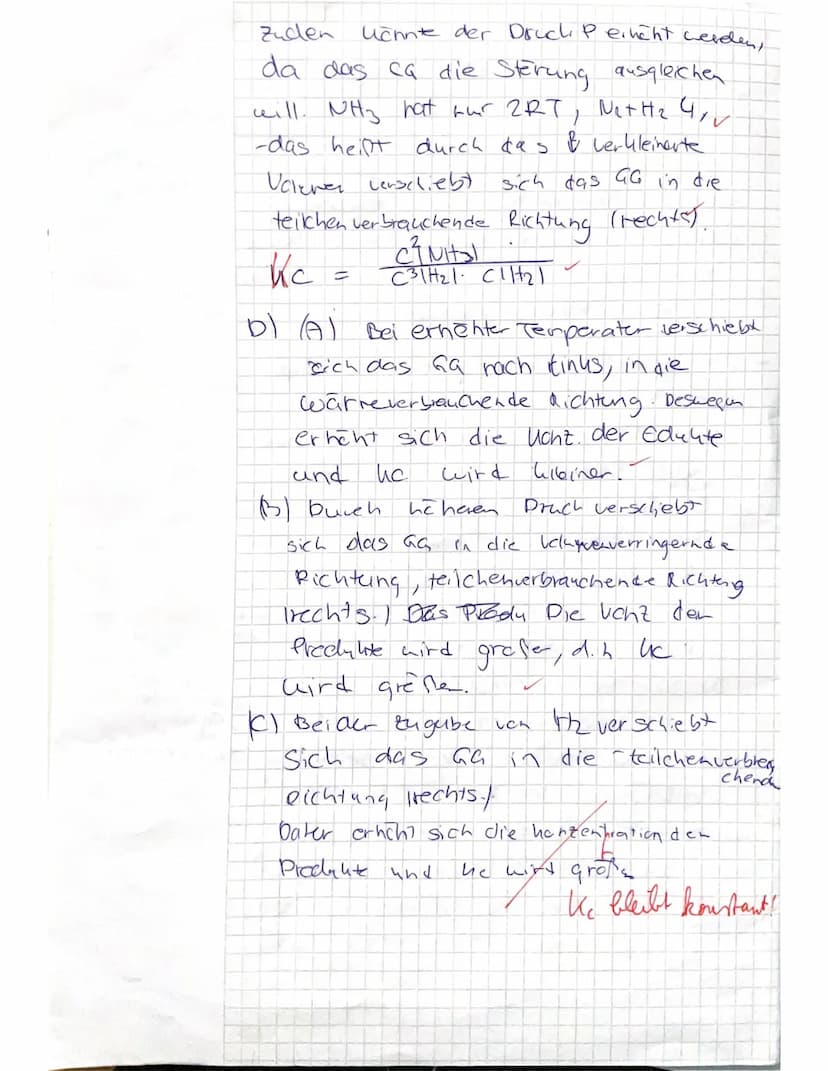 zudem könnte der Druck P erhöht werden,
da das GG die Störung ausgleichen
will. NH3 hat nur 2RT, N2+H2 4,
-das heißt durch das verkleinerte
Volumen verschiebt sich das GG in die
teilchenverbrauchende Richtung (rechts).
Kc = C²(NH3) / C³(H2) · C(H2)
b) (A) Bei erhöhter Temperatur verschiebt
sich das GG nach links, in die
wärmeverbrauchende Richtung. Deswegen
erhöht sich die Konz. der Edukte
und Kc wird kleiner.
(B) Durch höheren Druck verschiebt
sich das GG in die volumenverringernde
Richtung, teilchenverbrauchende Richtung
(rechts.) Das Produ Die Konz der
Produkte wird großer, d.h Kc
wird größer.
(C) Bei der Zugabe von H2 verschiebt
sich das GG in die teilchenverbrau
chende
Richtung (rechts)
Daher erhöht sich die Konzentration der
Produkte und Kc wird größe
Kc bleibt konstant!